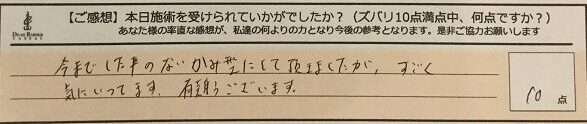 【ご感想】本日施術を受けられていかがでしたか？（ズバリ10点満点中、何点ですか？）
あなた様の率直な感想が、私達の何よりの力となり今後の参考となります。是非ご協力お願いします
今までした事のないかみ型にして頂きましたが、すごく
気にいってます。有難うございます。
10点